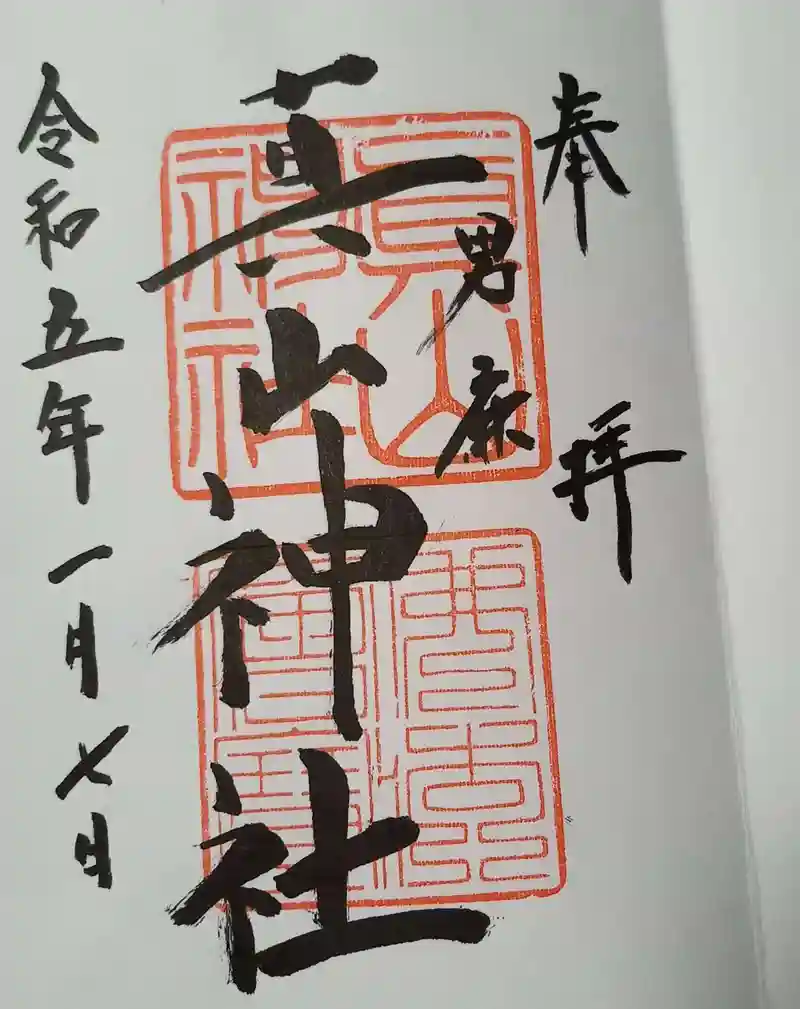 奉拝
男鹿
真山神社
眞山
神社
令和五年一月七日